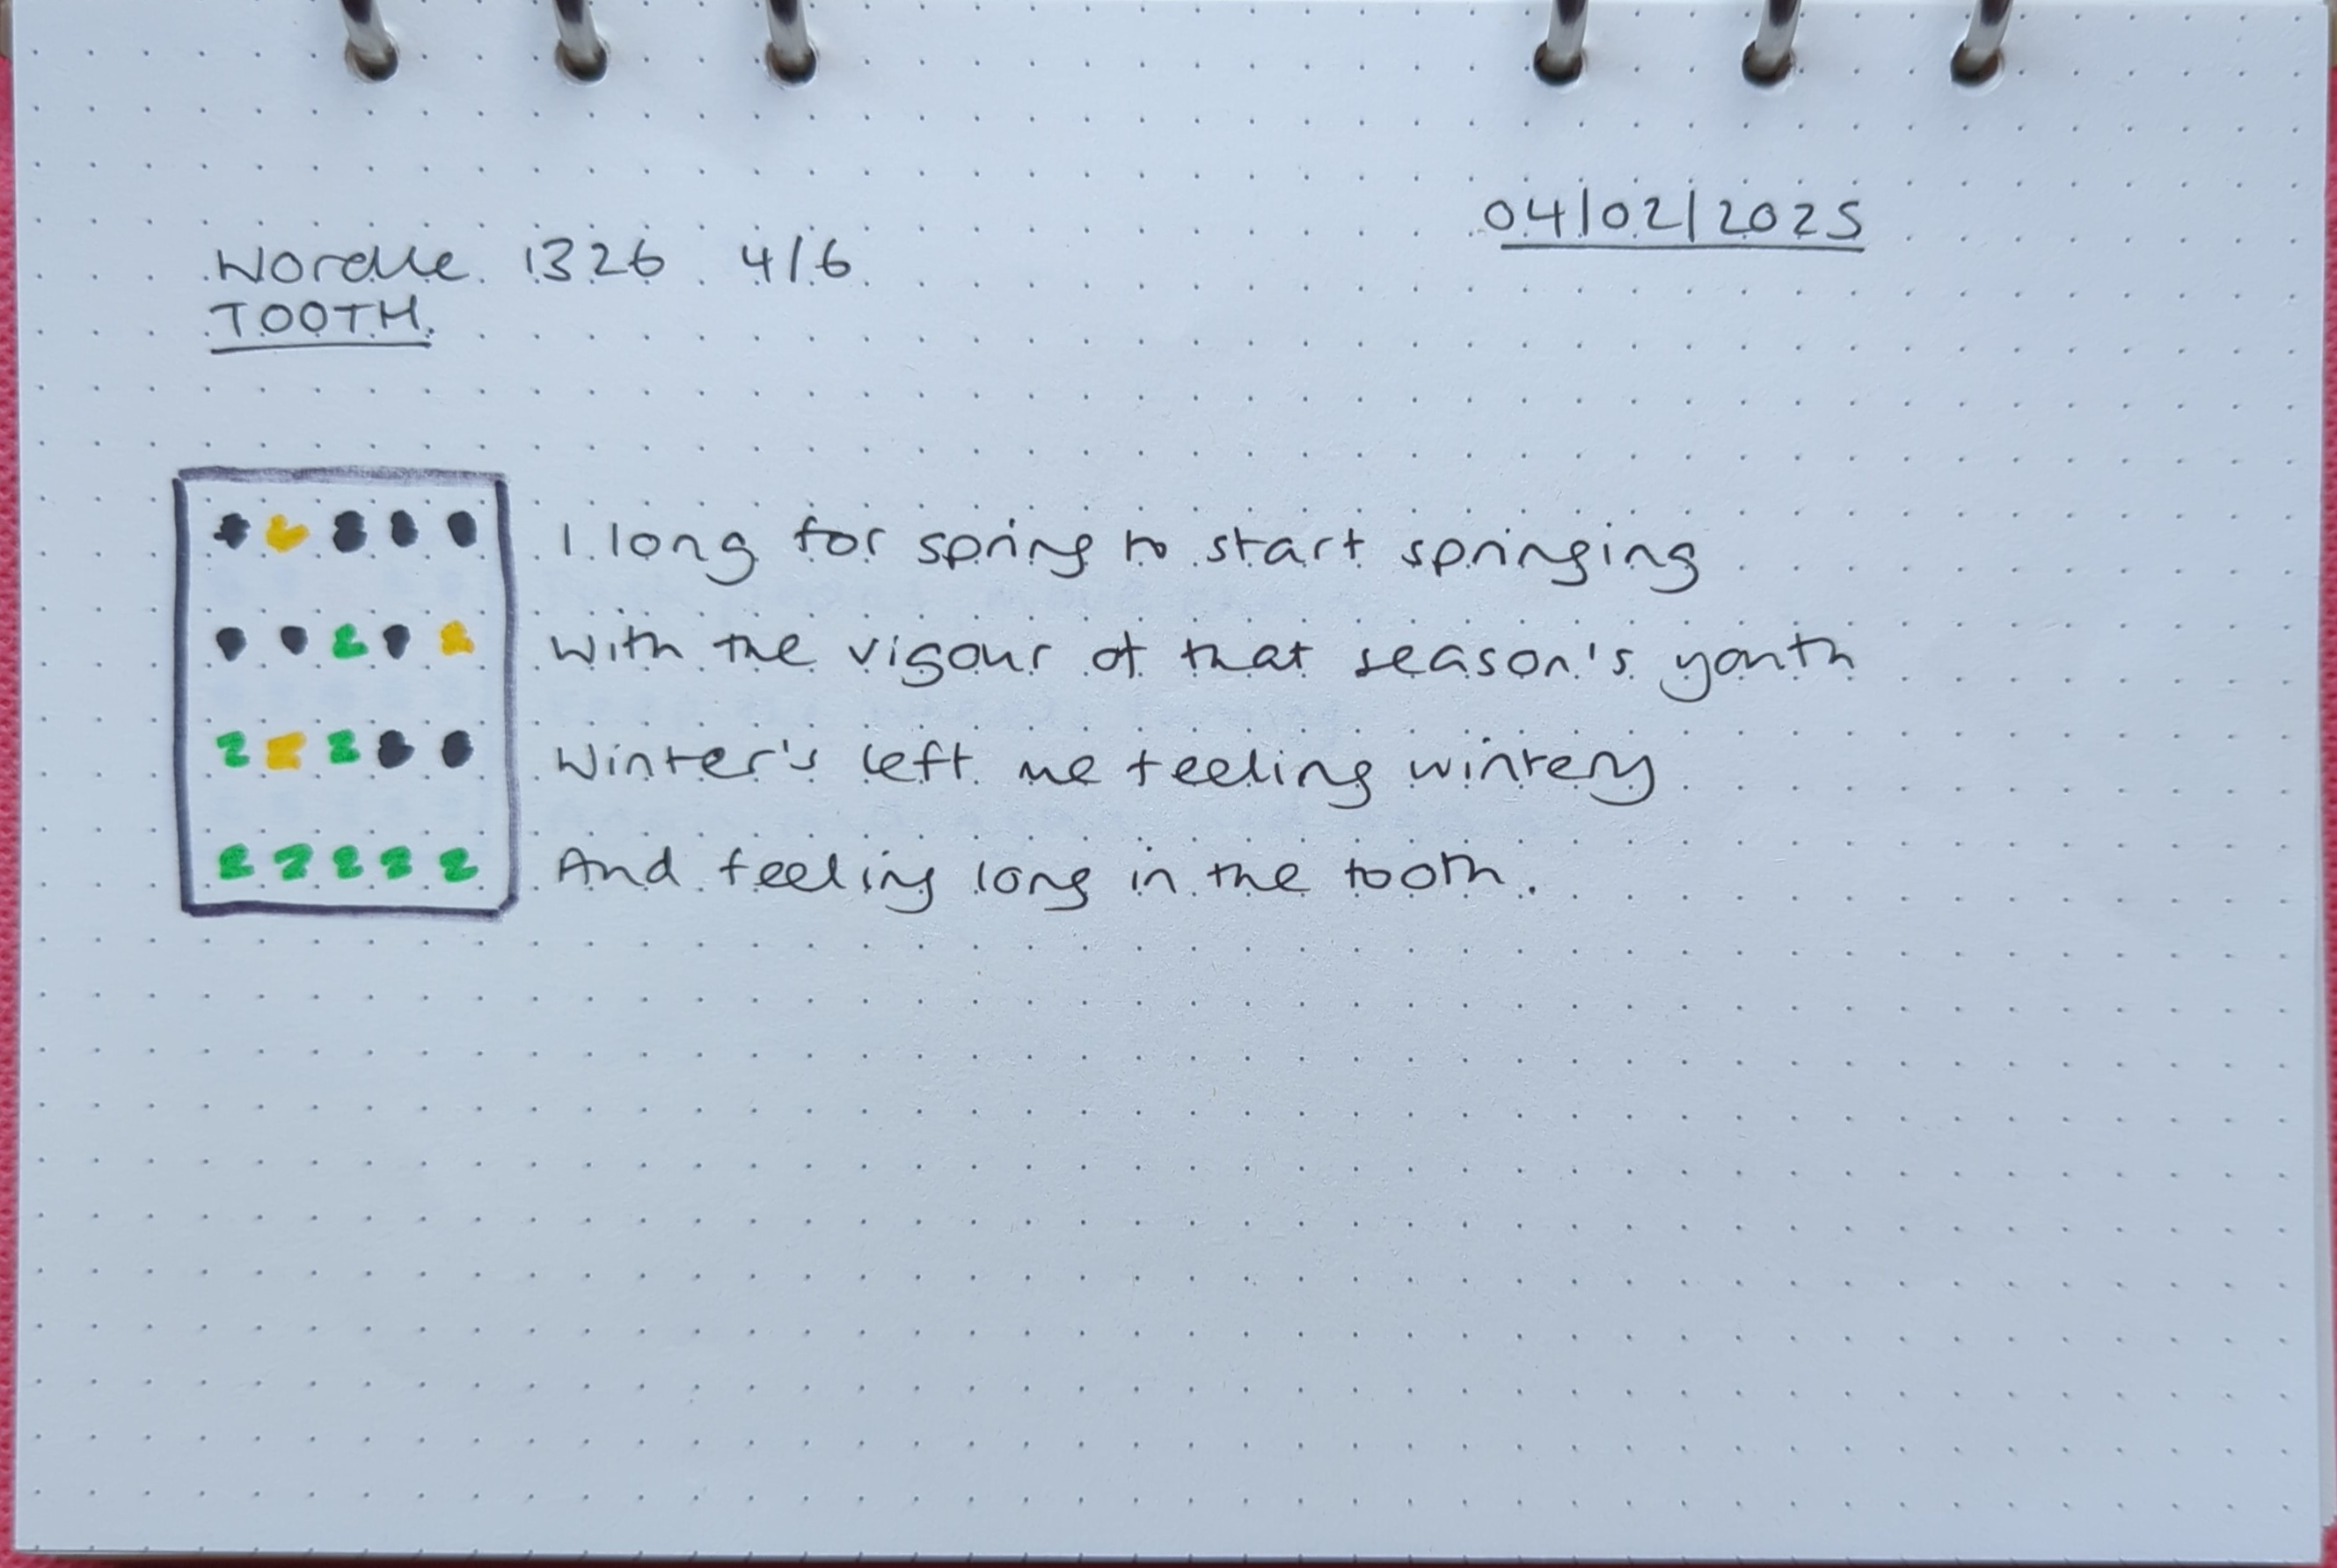 04/02/2025
Wordle 1326 4/6
TOOTH
I long for spring to start springing
With the vigour of that season's youth
Winter's left me feeling wintery
And feeling long in the tooth.